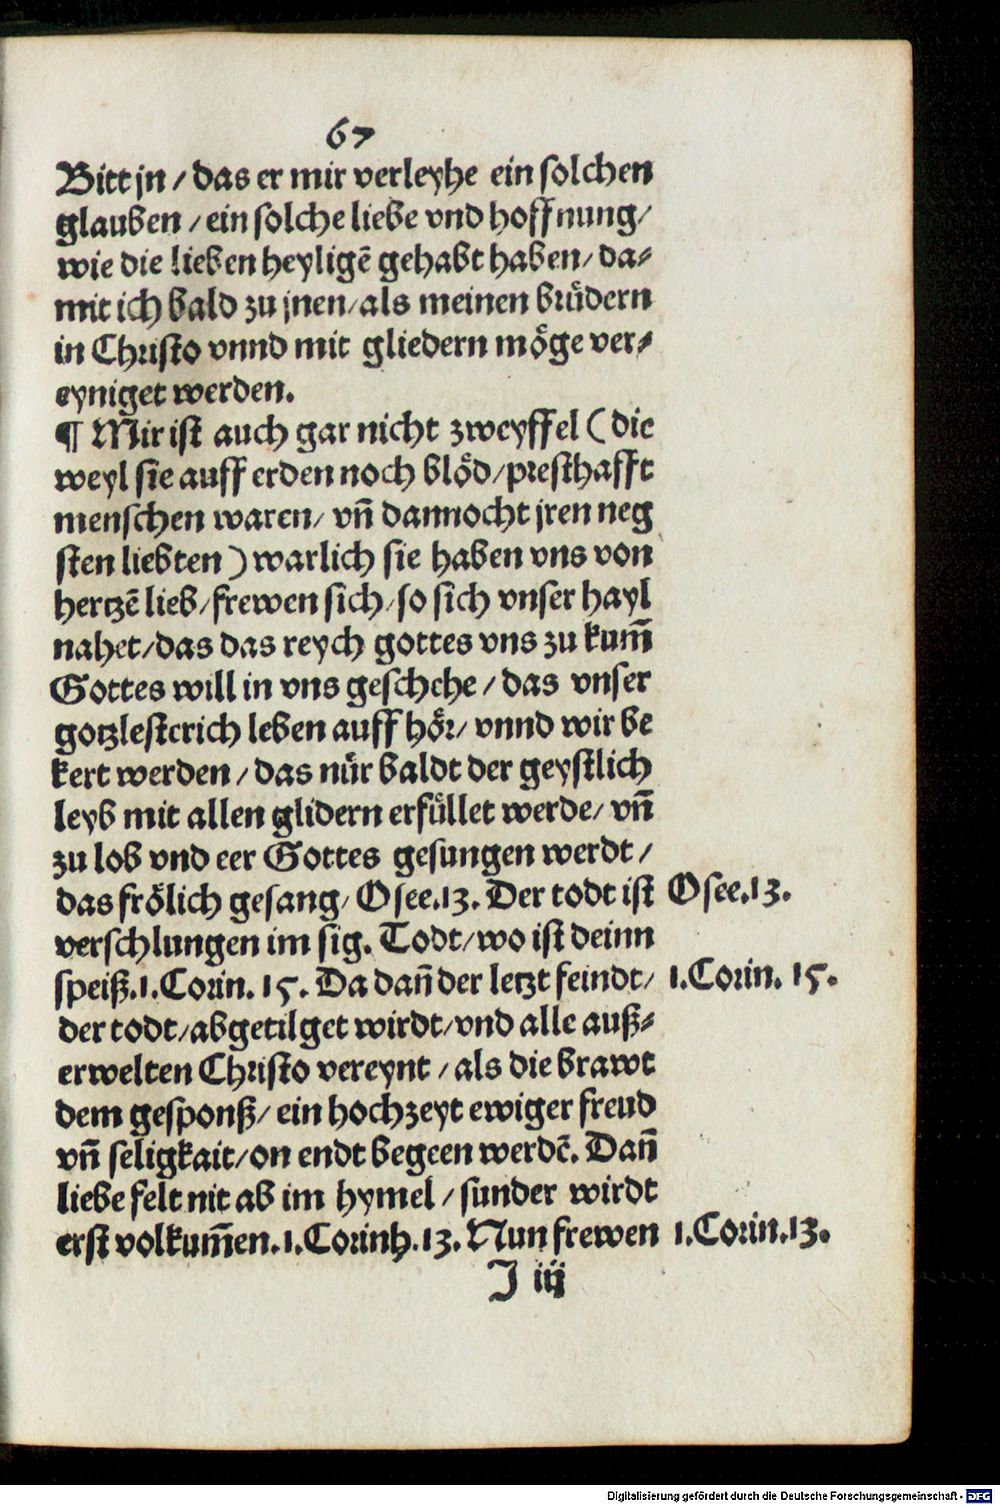 67
Bitt jn / das er mir verleyhe ein solchen
glauben / ein solche liebe vnd hoffnung/
wie die lieben heyligē gehabt haben/ da⸗
mit ich bald zu jnen/ als meinen brůdern
in Christo vnnd mit gliedern möge ver⸗
eyniget werden.
¶ Mir ist auch gar nicht zweyffel (die
weyl sie auff erden noch blöd/ presthafft
menschen waren/ vñ dannocht jren neg
sten liebten) warlich sie haben vns von
hertzē lieb/ frewen sich/ so sich vnser hayl
nahet/ das das reych gottes vns zu kum̄
Gottes will in vns geschehe / das vnser
gotzlesterich leben auff hör/ vnnd wir be
kert werden / das nůr baldt der geystlich
leyb mit allen glidern erfüllet werde/ vñ
zu lob vnd eer Gottes gesungen werdt /
das frölich gesang/ Osee.13. Der todt ist Osee.13.
verschlungen im sig. Todt/ wo ist deinn
speiß.1.Corin. 15. Da dañ der letzt feindt/ 1.Corin. 15.
der todt/ abgetilget wirdt/ vnd alle auß⸗
erwelten Christo vereynt / als die brawt
dem gesponß/ ein hochzeyt ewiger freud
vñ seligkait/ on endt begeen werdē. Dañ
liebe felt nit ab im hymel / sunder wirdt
erst volkum̄en.1.Corinh.13. Nun frewen 1.Corin.13.
J iij
Digitalisierung gefördert durch die Deutsche Forschungsgemeinschaft - DFG